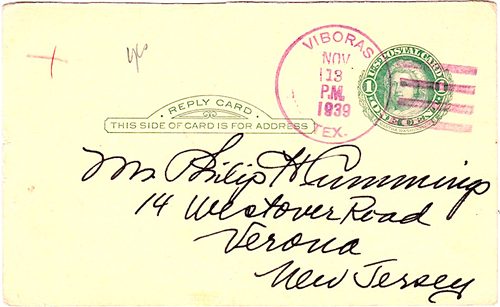 yes
VIBORAS
NOV
13
P.M.
1939
TEX.
U.S. POSTAL CARD
1 1
ONE CENT
REPLY CARD
THIS SIDE OF CARD IS FOR ADDRESS
Mr Philip H Cummings
14 Westover Road
Verona
New Jersey